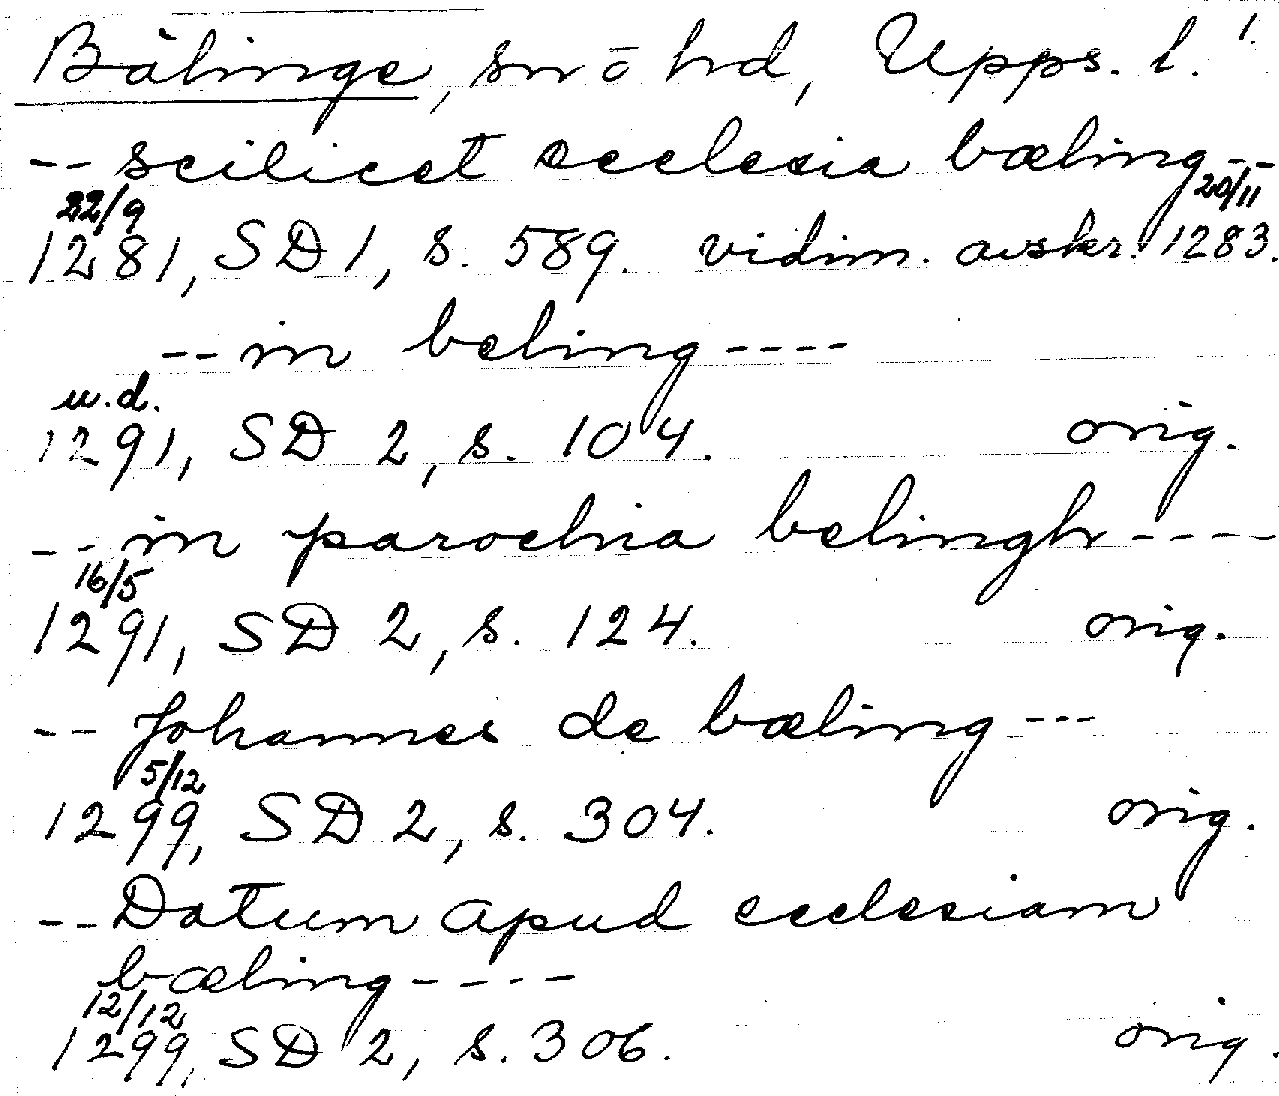 Bälinge, sn o hd, Upps. l. 1.
-- scilicet ecclesia bæling --
22/9 20/11
1281, SD 1, s. 589. vidim. avskr. 1283.
-- in beling ----
u.d.
1291, SD 2, s. 104. orig.
-- in parochia belingh ----
16/5
1291, SD 2, s. 124. orig.
-- Johannes de bæling ---
5/12
1299, SD 2, s. 304. orig.
-- Datum apud ecclesiam
bæling ----
12/12
1299, SD 2, s. 306. orig.